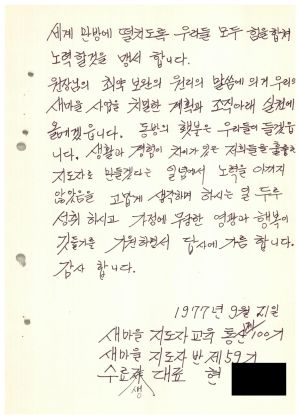 세계 만방에 떨치도록 우리들 모두 힘을 합쳐
노력할것을 맹서 합니다.
원장님의 취약 보완의 원리의 말씀에 의거 우리의
새마을 사업을 치밀한 계획과 조직아래 실천에
옮기겠읍니다. 동방의 횃불은 우리들이 들겠읍
니다. 생활과 경험이 차이가 있는 저희들을 훌륭한
지도자로 만들겠다는 일념에서 노력을 아끼지
않았음을 고맙게 생각하며 하시는 일 두루
성취 하시고 가정에 무궁한 영광과 행복이
깃들기를 기원하면서 답사에 가름 합니다.
감사 합니다.
1977년 9월 21일
새마을 지도자 교육 통산 100기
새마을 지도자 반 제 59기
수료생 대표 현